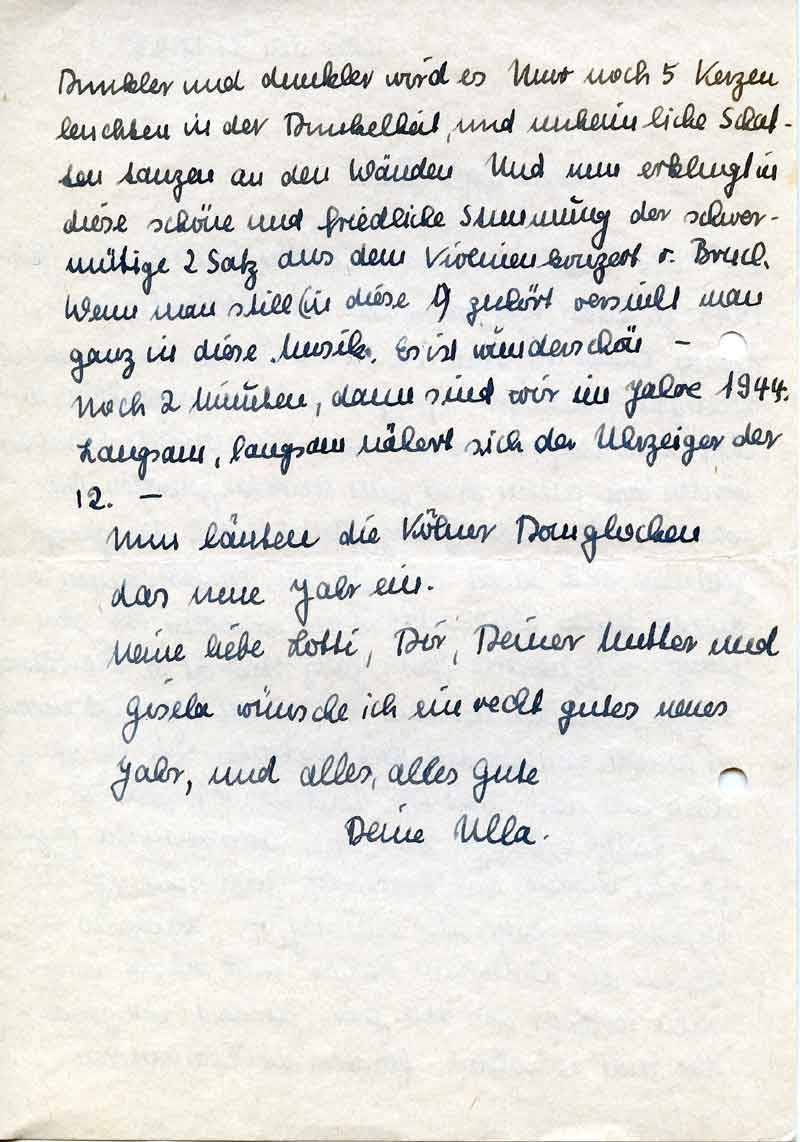 Dunkler und dunkler wird es Nur noch 5 Kerzen
leuchten in der Dunkelheit, und unheimliche Schat-
ten tanzen an den Wänden Und nun erklingt in
diese schöne und friedliche Stimmung der schwer-
mütige 2 Satz aus dem Violinenkonzert v. Bruch.
Wenn man still (in diese !) zuhört versinkt man
ganz in diese Musik. Es ist wunderschön –
Noch 2 Minuten, dann sind wir im Jahre 1944.
Langsam, langsam nähert sich der Uhrzeiger der
12. –
Nun läuten die Kölner Domglocken
das neue Jahr ein.
Meine liebe Lotti, Dir, Deiner Mutter und
Gisela wünsche ich ein recht gutes neues
Jahr, und alles, alles Gute
Deine Ulla.